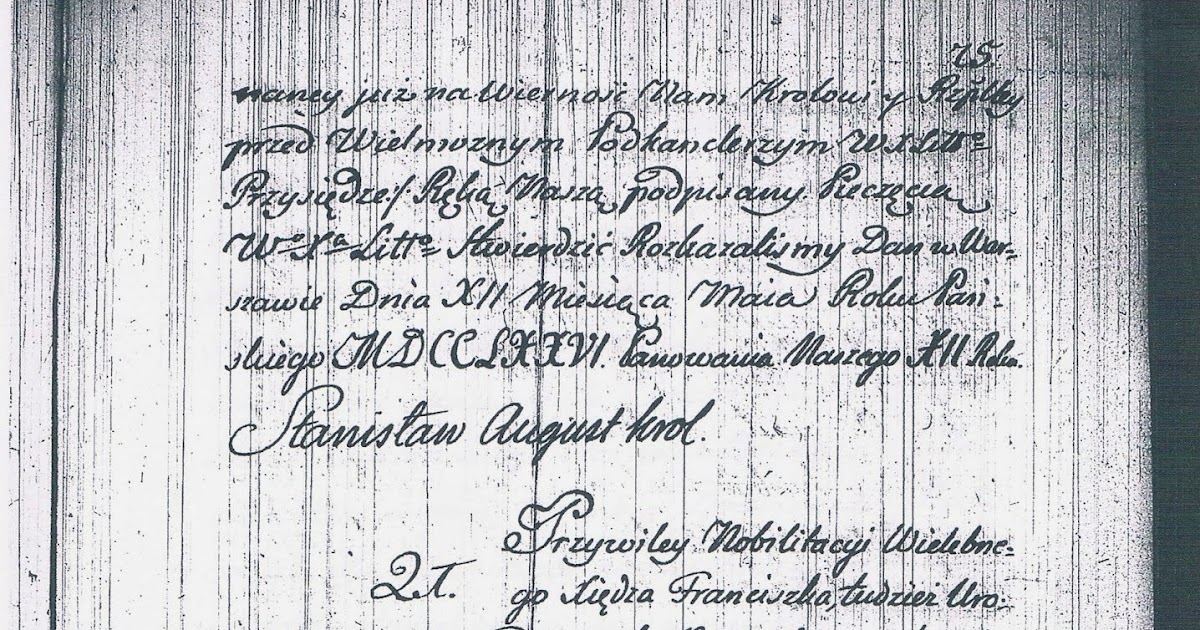 75
nancy już na Wierność Nam Krolowi y Rzpltey
przed Wielmoznym Podkanclerzym W X Litt°
Przysiędze /. Ręką Naszą podpisany Pieczęcią
W° Xa Litt° Stwierdzić Rozkazalismy Dan w War-
szawie Dnia XII Miesiąca Maia Roku Pań-
skiego MDCCLXXVI. Panowania Naszego XII Roku.
Stanisław August krol.
Przywiley Nobilitacyi Wielebne-
21. go Xiędza Franciszka, tudzież Uro-